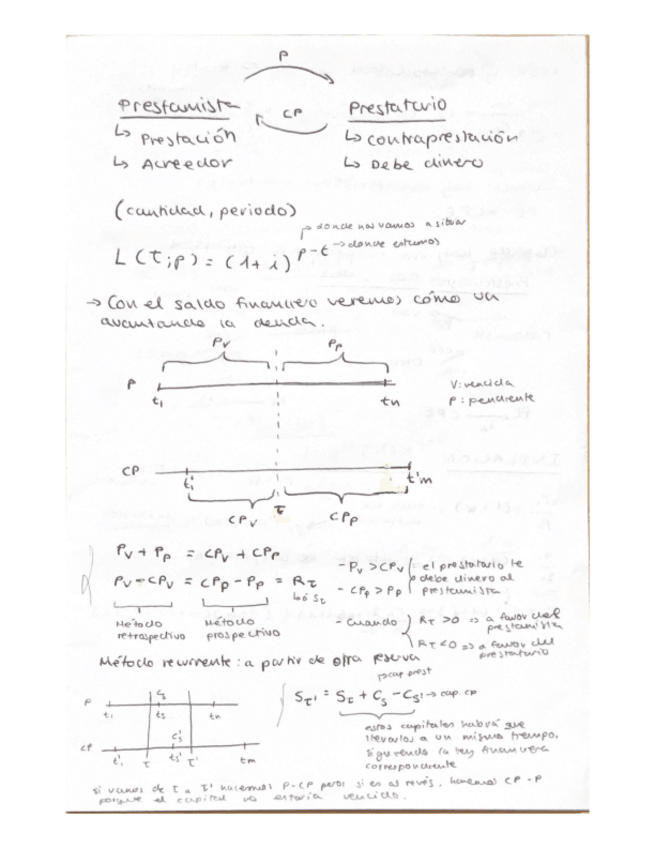 P
Prestamista Prestatario
CP
↳ Prestación ↳ contraprestación
↳ Acreedor ↳ Debe dinero
(cantidad, periodo)
donde nos vamos a situar
L(τ;p) = (1+i)^p-t → donde estamos
→ Con el saldo financiero veremos cómo va
avanzando la deuda.
Pv Pp
P t1 tn
V: vencida
P: pendiente
CP t1' t'm
CPv τ CPp
Pv + Pp = CPv + CPp
Pv - CPv = CPp - Pp = Rτ
ó Sτ
Método retrospectivo Método prospectivo
- Pv > CPv
- CPp > Pp
el prestatario le
debe dinero al
prestamista
- Cuando Rτ > 0 => a favor del
prestamista
Rτ < 0 => a favor del
prestatario
Método recurrente: a partir de otra reserva
cap prest
Sτ' = Sτ + Cs - Cs' → cap. cp
P t1 Cs ts tn
CP t'1 τ Cs' ts' τ' tm
estos capitales habrá que
llevarlos a un mismo tiempo,
siguiendo la ley financiera
correspondiente
si vamos de τ a τ' hacemos P-CP pero si es al revés, hacemos CP-P
porque el capital ya estaría vencido.